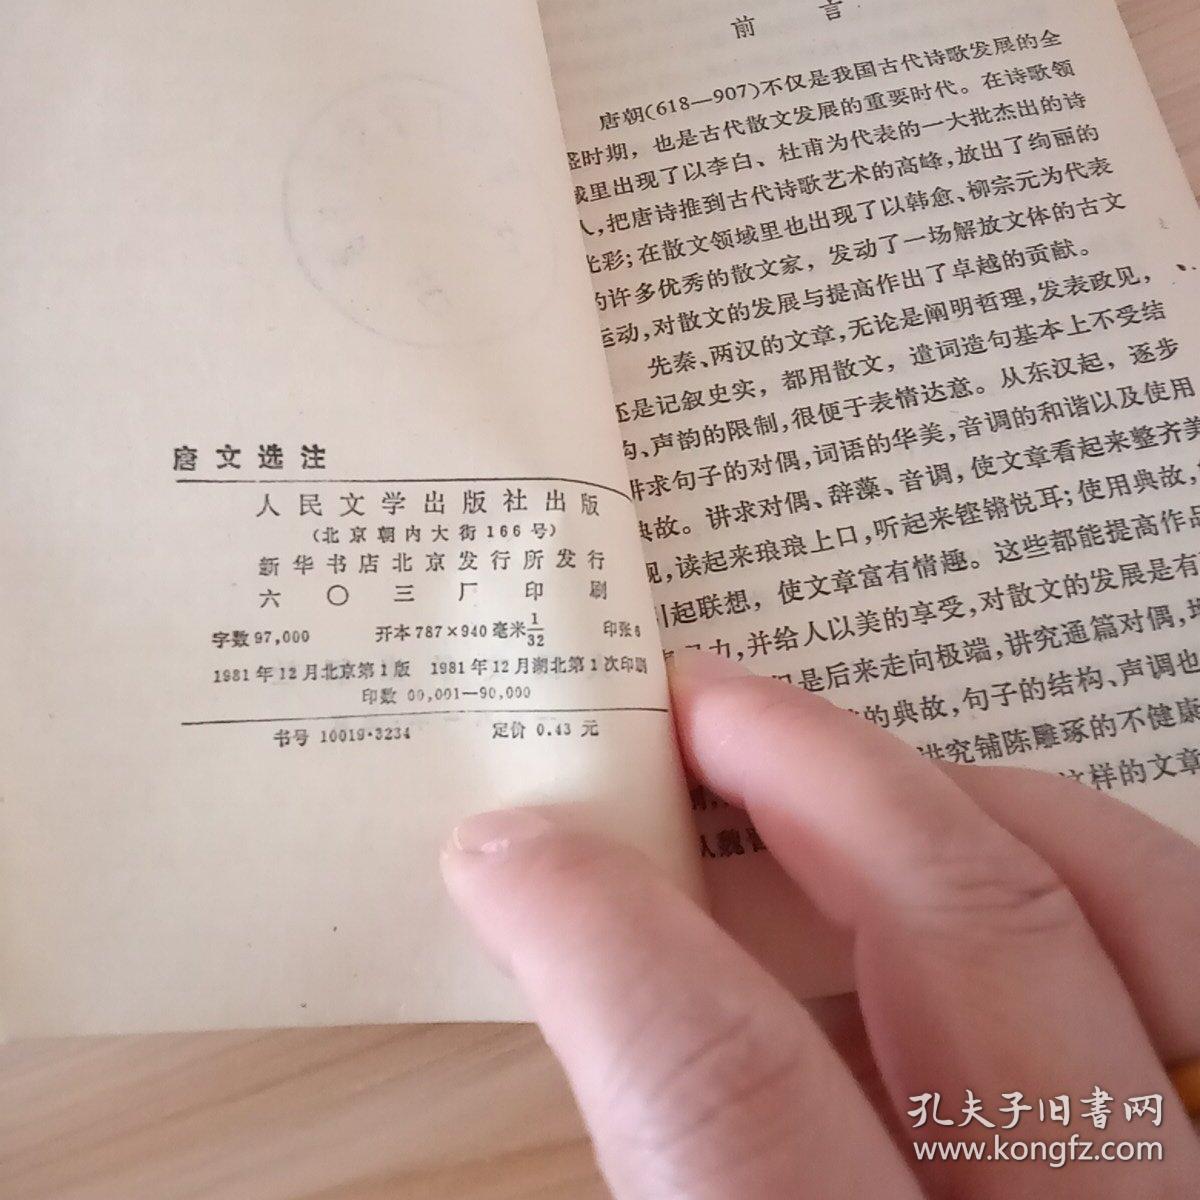 唐文选注
人民文学出版社出版
(北京朝内大街166号)
新华书店北京发行所发行
六〇三厂印刷
字数97,000 开本787×940毫米1/32 印张6
1981年12月北京第1版 1981年12月湖北第1次印刷
印数 00,001—90,000
书号 10019·3234 定价 0.43 元
前言
唐朝(618—907)不仅是我国古代诗歌发展的全
盛时期，也是古代散文发展的重要时代。在诗歌领
域里出现了以李白、杜甫为代表的一大批杰出的诗
人,把唐诗推到古代诗歌艺术的高峰,放出了绚丽的
光彩;在散文领域里也出现了以韩愈、柳宗元为代表
的许多优秀的散文家，发动了一场解放文体的古文
运动,对散文的发展与提高作出了卓越的贡献。
先秦、两汉的文章,无论是阐明哲理,发表政见,
还是记叙史实，都用散文，遣词造句基本上不受结
构、声韵的限制,很便于表情达意。从东汉起，逐步
讲求句子的对偶,词语的华美,音调的和谐以及使用
典故。讲求对偶、辞藻、音调，使文章看起来整齐美
观,读起来琅琅上口,听起来铿锵悦耳;使用典故,
引起联想，使文章富有情趣。这些都能提高作品
力,并给人以美的享受,对散文的发展是有
是后来走向极端,讲究通篇对偶,
的典故,句子的结构、声调也
讲究铺陈雕琢的不健康
这样的文章
人魏晋
孔夫子旧書网
www.kongfz.com